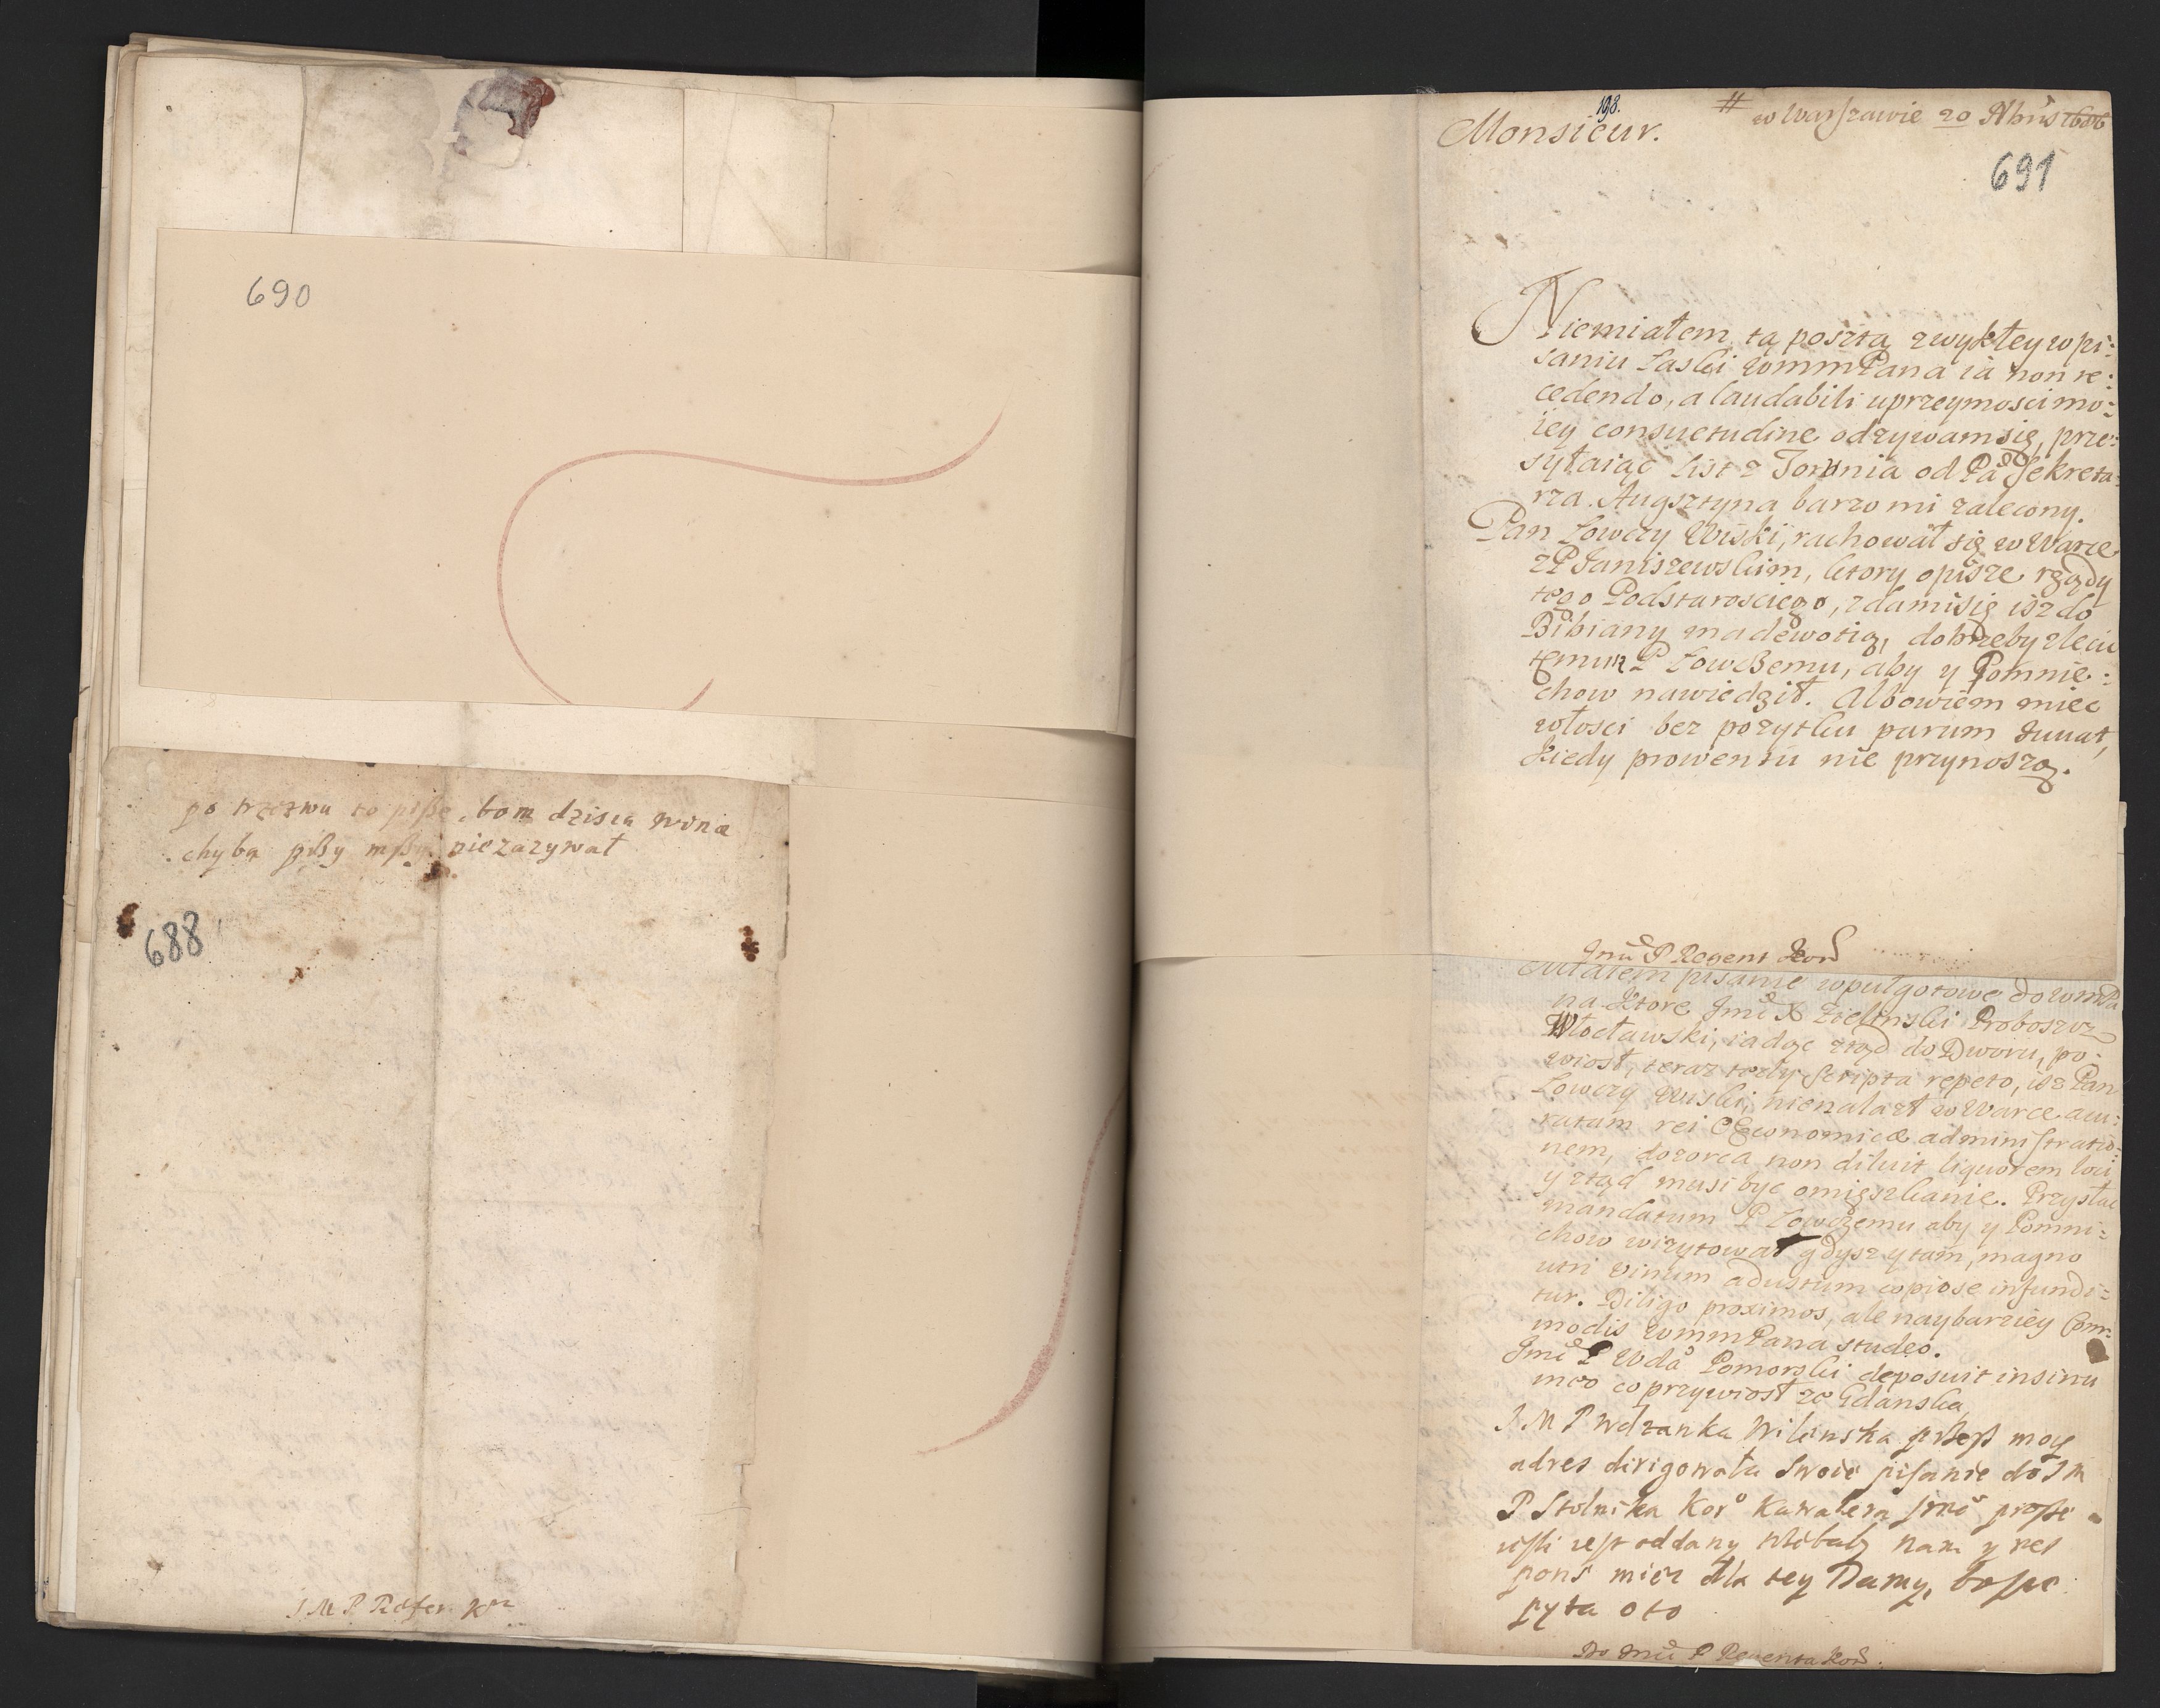 690
po trzezwu to pisze, bom dzisia wina
chyba nie zazywał
688
J M P Refer. Kor
198.
# w Warszawie 20 Nbris 1686
Monsieur.
691
Niemiałem tą posztą zwykłey w pi:
saniu Laski WmmPana ia non re:
cedendo, a laudabili uprzeymosci mo:
iey consuetudine odzywamsię, prze:
syłaiąc list z Torunia od Pa Sekreta:
rza Augsztyna barzo mi zalecony.
Pan Łowczy Wiski, rachował się w Warce
z P Janiszewskim, ktory opisze rządy
tego Podstarosciego, zdamisię isz do
Bibiany ma dewotią, dobrzeby zlecic
temu P Łowczemu, aby y Pomnie:
chow nawiedził. Albowiem miec
włosci bez pozytku parum Iuuat,
kiedy prowentu nie przynoszą.
Jmci P Regent Kor
Miałem pisanie wpułgotowe do WmPa
na ktore Jmci X Zielinski Proboszcz
Włocławski, iadąc ztąd do Dworu, po:
wiosł, teraz tedy scripta repeto, isz Pan
Łowczy Wiski, nienalazł w Warce accu:
ratam rei Oeconomicæ administratio:
nem, dozorca non diluit liquorem loci
y ztąd musi byc omieszkanie. Przysłac
mandatum P Łowczemu aby y Pomni:
chow wizytował gdysz y tam, magno
utri vinum adustum copiose infundi:
tur. Diligo proximos, ale naybarziey Com:
modis WmmPana studeo.
Jmci P Wda Pomorski deposuit in sinu
meo co przywiosł ze Gdanska
J M P Wdzanka Wilenska przez moy
adres dirigowała swoie pisanie do J M
P Stolnika Kor Kawalera prosze
iesli iest oddany nam y res
pons miec dla tey Damy, bo sie
pyta o to
Do Jmci P Regenta Kor.